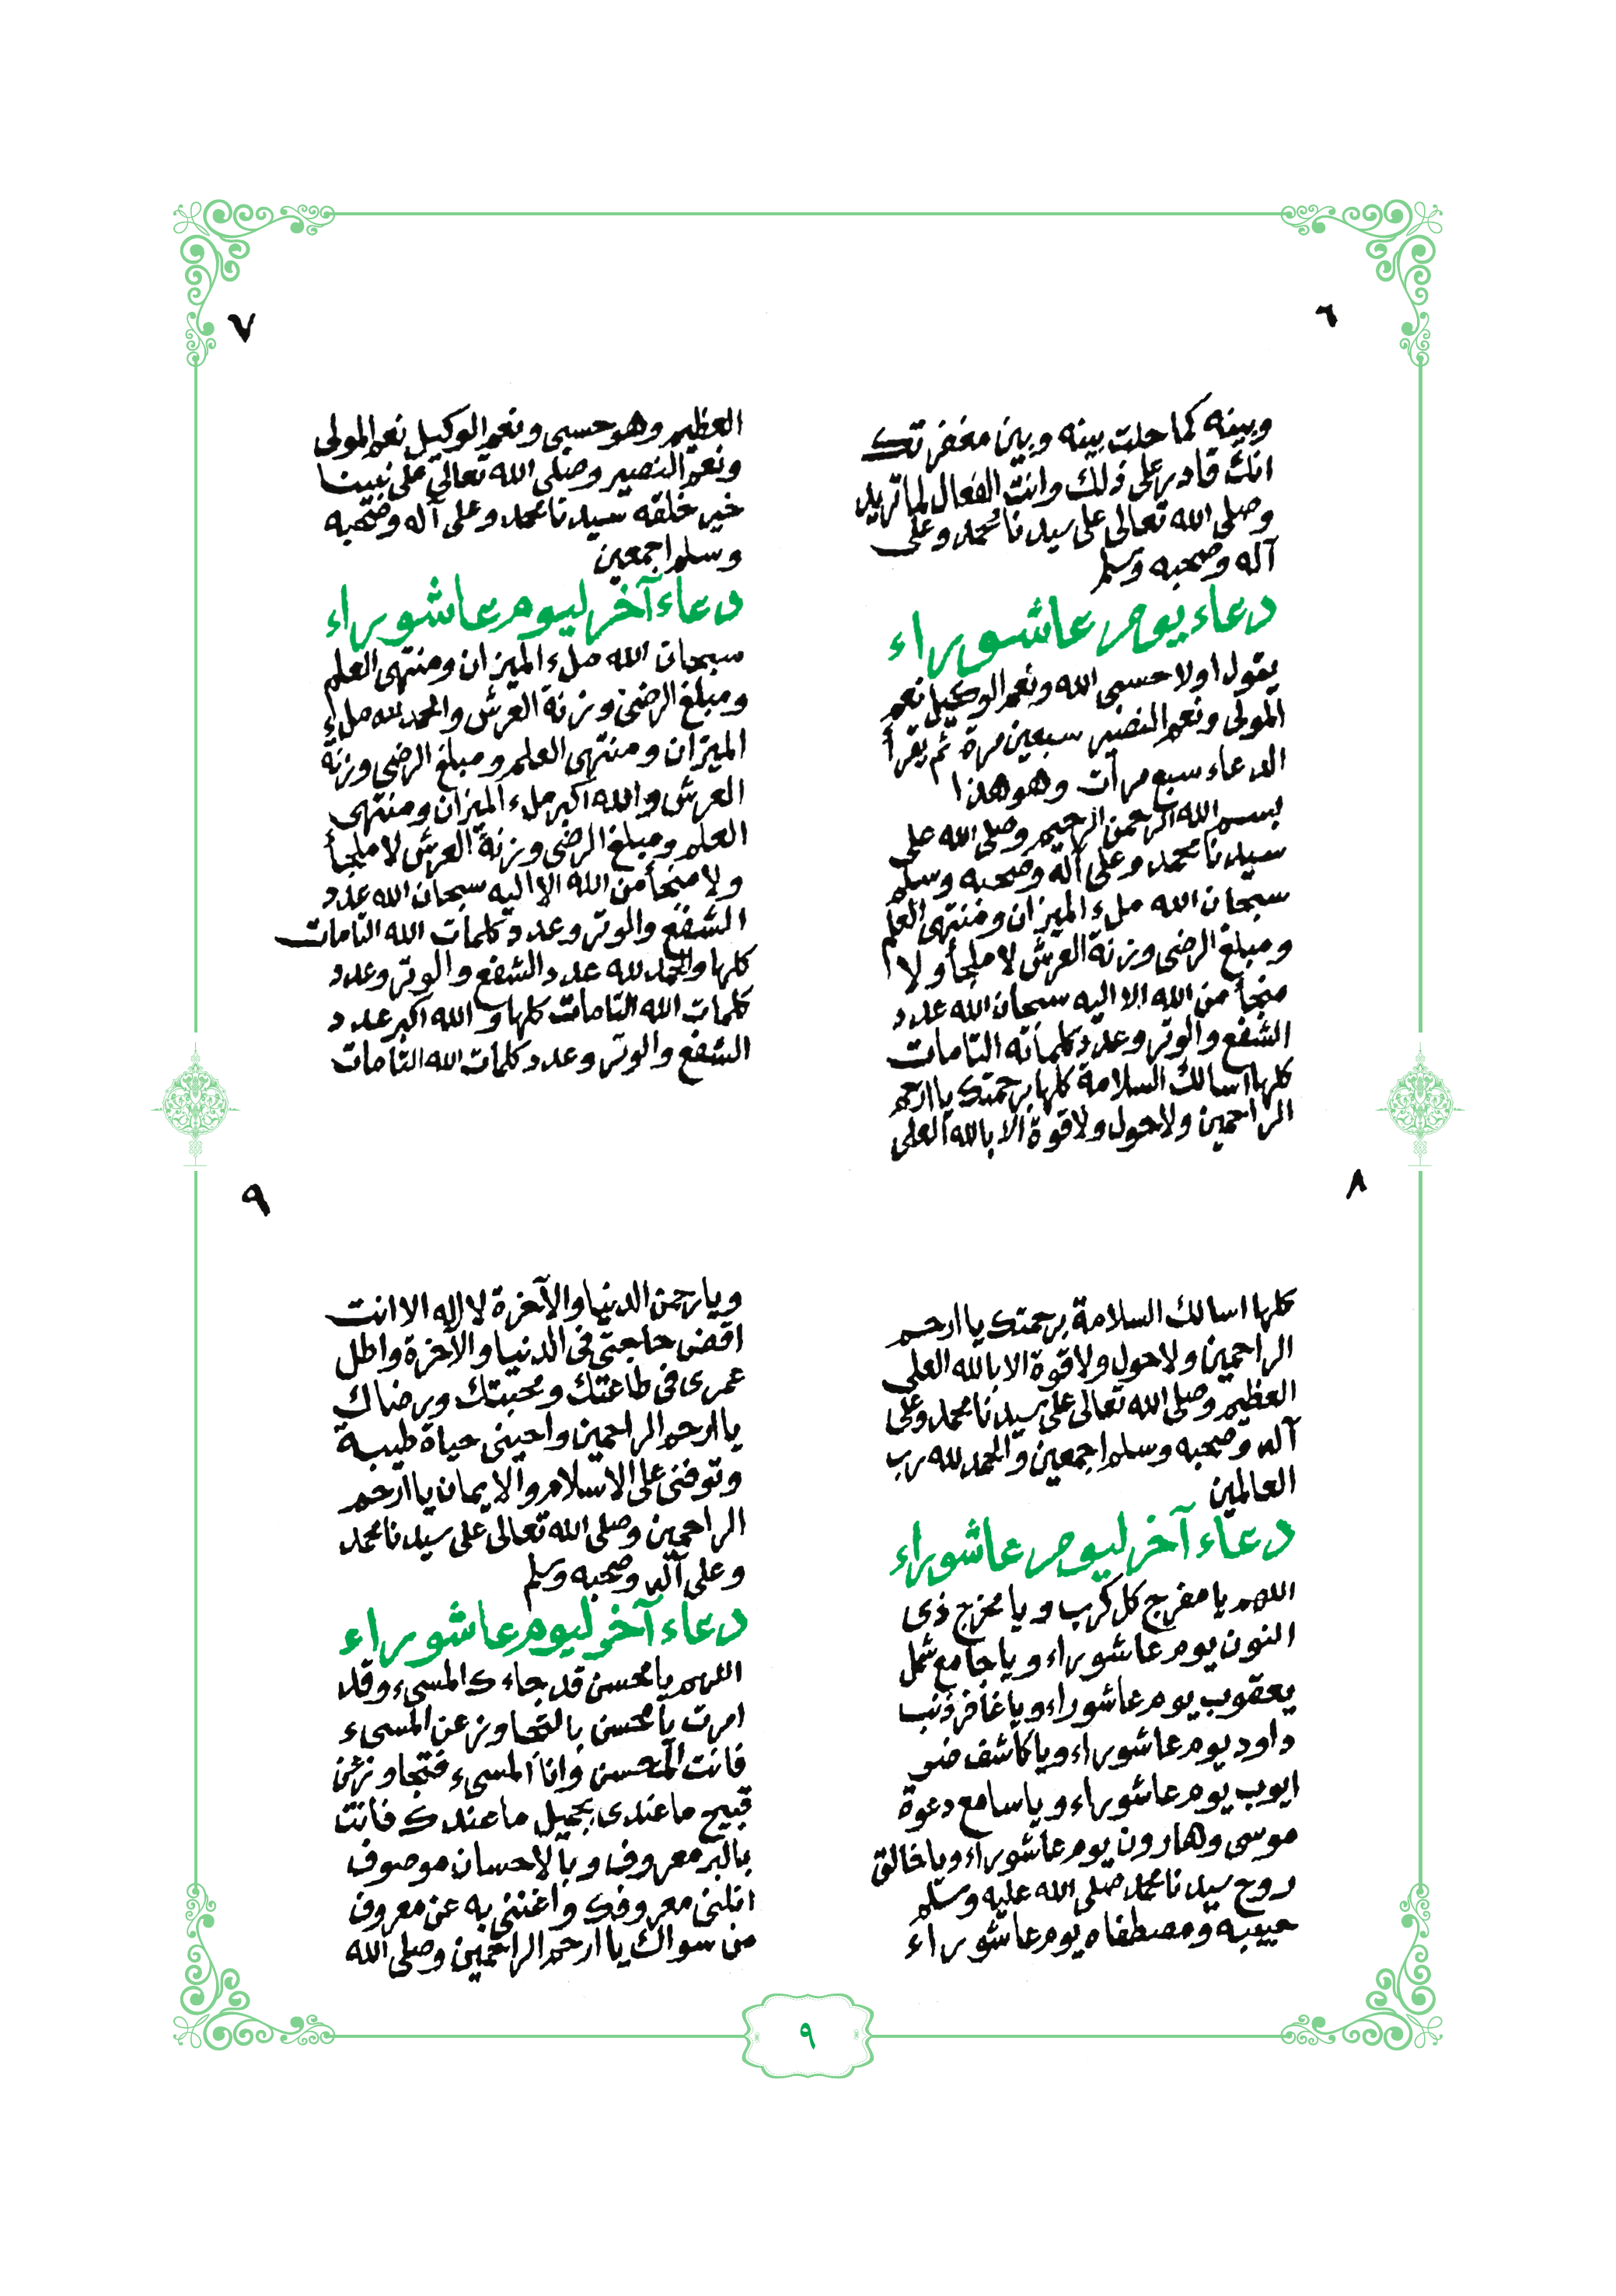 ٦
وبينه كما حلت بينه وبين مغفرتك
انك قادر على ذلك وانت الفعال لما تريد
وصلى الله تعالى على سيدنا محمد وعلى
آله وصحبه وسلم
دعاء يوم عاشوراء
يقول اولا حسبي الله ونعم الوكيل نعم
المولى ونعم النصير سبعين مرة ثم يقرأ
الدعاء سبع مرات وهو هذا
بسم الله الرحمن الرحيم وصلى الله على
سيدنا محمد وعلى آله وصحبه وسلم
سبحان الله ملء الميزان ومنتهى العلم
ومبلغ الرضى وزنة العرش لا ملجأ ولا
منجأ من الله الا اليه سبحان الله عدد
الشفع والوتر وعدد كلماته التامات
كلها اسالك السلامة كلها برحمتك يا ارحم
الراحمين ولا حول ولا قوة الا بالله العلى
٧
العظيم وهو حسبى ونعم الوكيل نعم المولى
ونعم النصير وصلى الله تعالى على نبينا
خير خلقه سيدنا محمد وعلى آله وصحبه
وسلم اجمعين
دعاء آخر ليوم عاشوراء
سبحان الله ملء الميزان ومنتهى العلم
ومبلغ الرضى وزنة العرش والحمد لله ملء
الميزان ومنتهى العلم ومبلغ الرضى وزنة
العرش والله اكبر ملء الميزان ومنتهى
العلم ومبلغ الرضى وزنة العرش لا ملجأ
ولا منجأ من الله الا اليه سبحان الله عدد
الشفع والوتر وعدد كلمات الله التامات
كلها والحمد لله عدد الشفع والوتر وعدد
كلمات الله التامات كلها والله اكبر عدد
الشفع والوتر وعدد كلمات الله التامات
٨
كلها اسالك السلامة برحمتك يا ارحم
الراحمين ولا حول ولا قوة الا بالله العلى
العظيم وصلى الله تعالى على سيدنا محمد وعلى
آله وصحبه وسلم اجمعين والحمد لله رب
العالمين
دعاء آخر ليوم عاشوراء
اللهم يا مفرج كل كرب ويا مخرج ذى
النون يوم عاشوراء ويا جامع شمل
يعقوب يوم عاشوراء ويا غافر ذنب
داود يوم عاشوراء ويا كاشف ضر
ايوب يوم عاشوراء ويا سامع دعوة
موسى وهارون يوم عاشوراء ويا خالق
روح سيدنا محمد صلى الله عليه وسلم
حبيبه ومصطفاه يوم عاشوراء
٩
ويا رحمن الدنيا والآخرة لا اله الا انت
اقض حاجتى فى الدنيا والآخرة واطل
عمرى فى طاعتك ومحبتك ورضاك
يا ارحم الراحمين واحينى حياة طيبة
وتوفنى على الاسلام والايمان يا ارحم
الراحمين وصلى الله تعالى على سيدنا محمد
وعلى آله وصحبه وسلم
دعاء آخر ليوم عاشوراء
اللهم يا محسن قد جاءك المسىء وقد
امرت يا محسن بالتجاوز عن المسىء
فانت المحسن وانا المسىء فتجاوز عن
قبيح ما عندى بجميل ما عندك فانت
بالبر معروف وبالاحسان موصوف
انلنى معروفك واغننى به عن معروف
من سواك يا ارحم الراحمين وصلى الله
٩